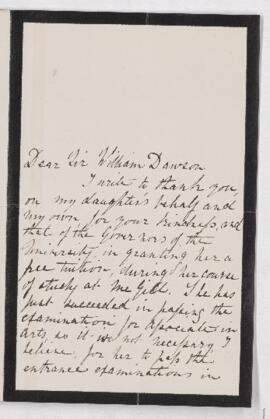 Dear Sir William Dawson
I write to thank you,
on my daughter's behalf, and
my own for your kindness, and
that of the Governors of the
University, in granting her a
free tuition, during her course
of study at McGill. She has
just succeeded in passing the
examination for Associate in
arts, so it was not necessary I
believe, for her to pass the
entrance examinations in